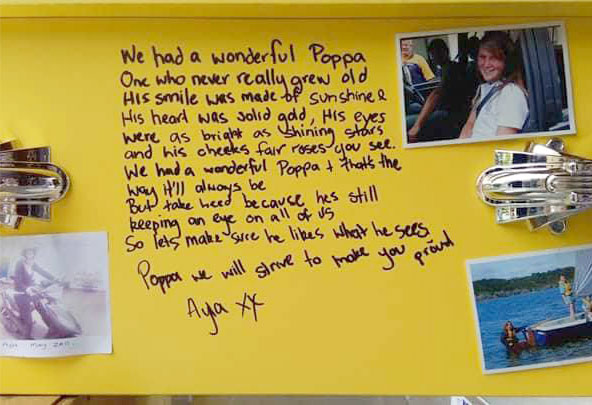 We had a wonderful Poppa
One who never really grew old
His smile was made of sunshine &
His heart was solid gold, His eyes
were as bright as shining stars
and his cheeks fair roses you see.
We had a wonderful Poppa + that's the
way it'll always be
But take heed because hes still
keeping an eye on all of us
So lets make sure he likes what he sees
Poppa we will strive to make you proud
Ayla xx